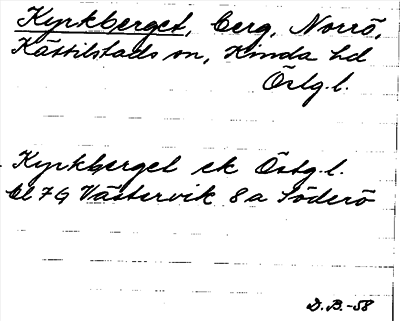 Kyrkberget, berg, Norrö,
Kättilstads sn, Kinda hd
Östg.l.
Kyrkberget ek Östg.l.
bl 7G Västervik 8a Söderö
D.B.-58